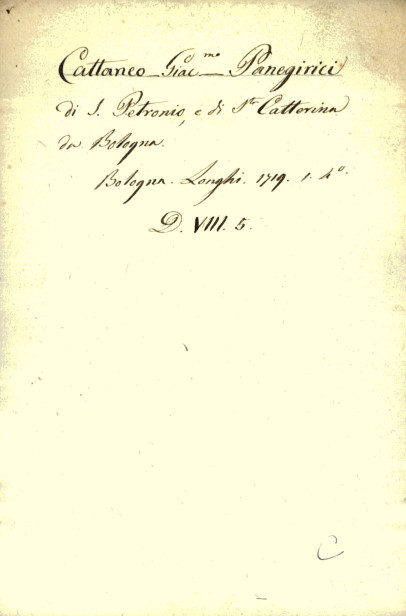 Cattaneo - Giac.mo - Panegirici
di S. Petronio, e di S.ta Cattarina
da Bologna.
Bologna. Longhi. 1719. 1. 4.o
D. VIII. 5.
C